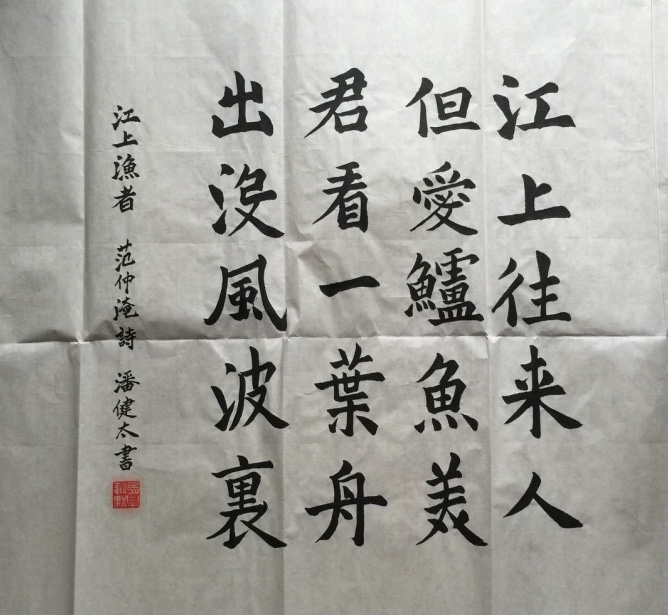 江上往来人
但愛鱸魚美
君看一葉舟
出沒風波裏
江上漁者 范仲淹詩 潘健太書